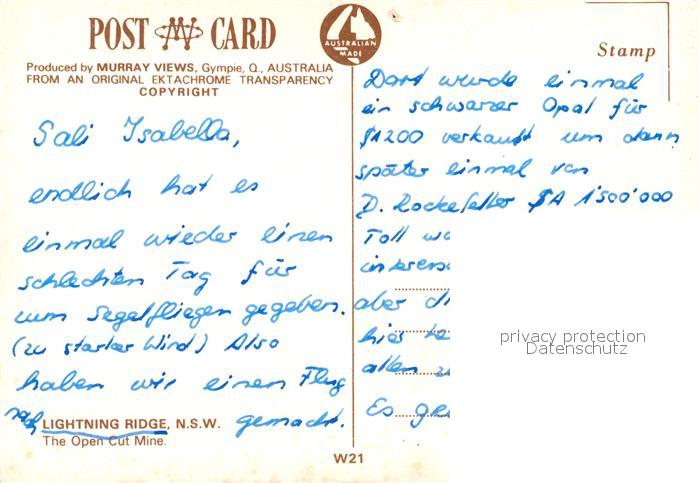 POST CARD
AUSTRALIAN
MADE
Stamp
Produced by MURRAY VIEWS, Gympie, Q., AUSTRALIA
FROM AN ORIGINAL EKTACHROME TRANSPARENCY
COPYRIGHT
Sali Isabella,
endlich hat es
einmal wieder einen
schlechten Tag für
zum Segelfliegen gegeben.
(zu starker Wind) Also
haben wir einen Flug
nach LIGHTNING RIDGE, N.S.W. gemacht.
The Open Cut Mine.
Dort wurde einmal
ein schwarzer Opal für
$1200 verkauft um dann
später einmal von
D. Rockefeller $A 1'500'000
Toll
aber
hier
allen
Es
W21
privacy protection
Datenschutz